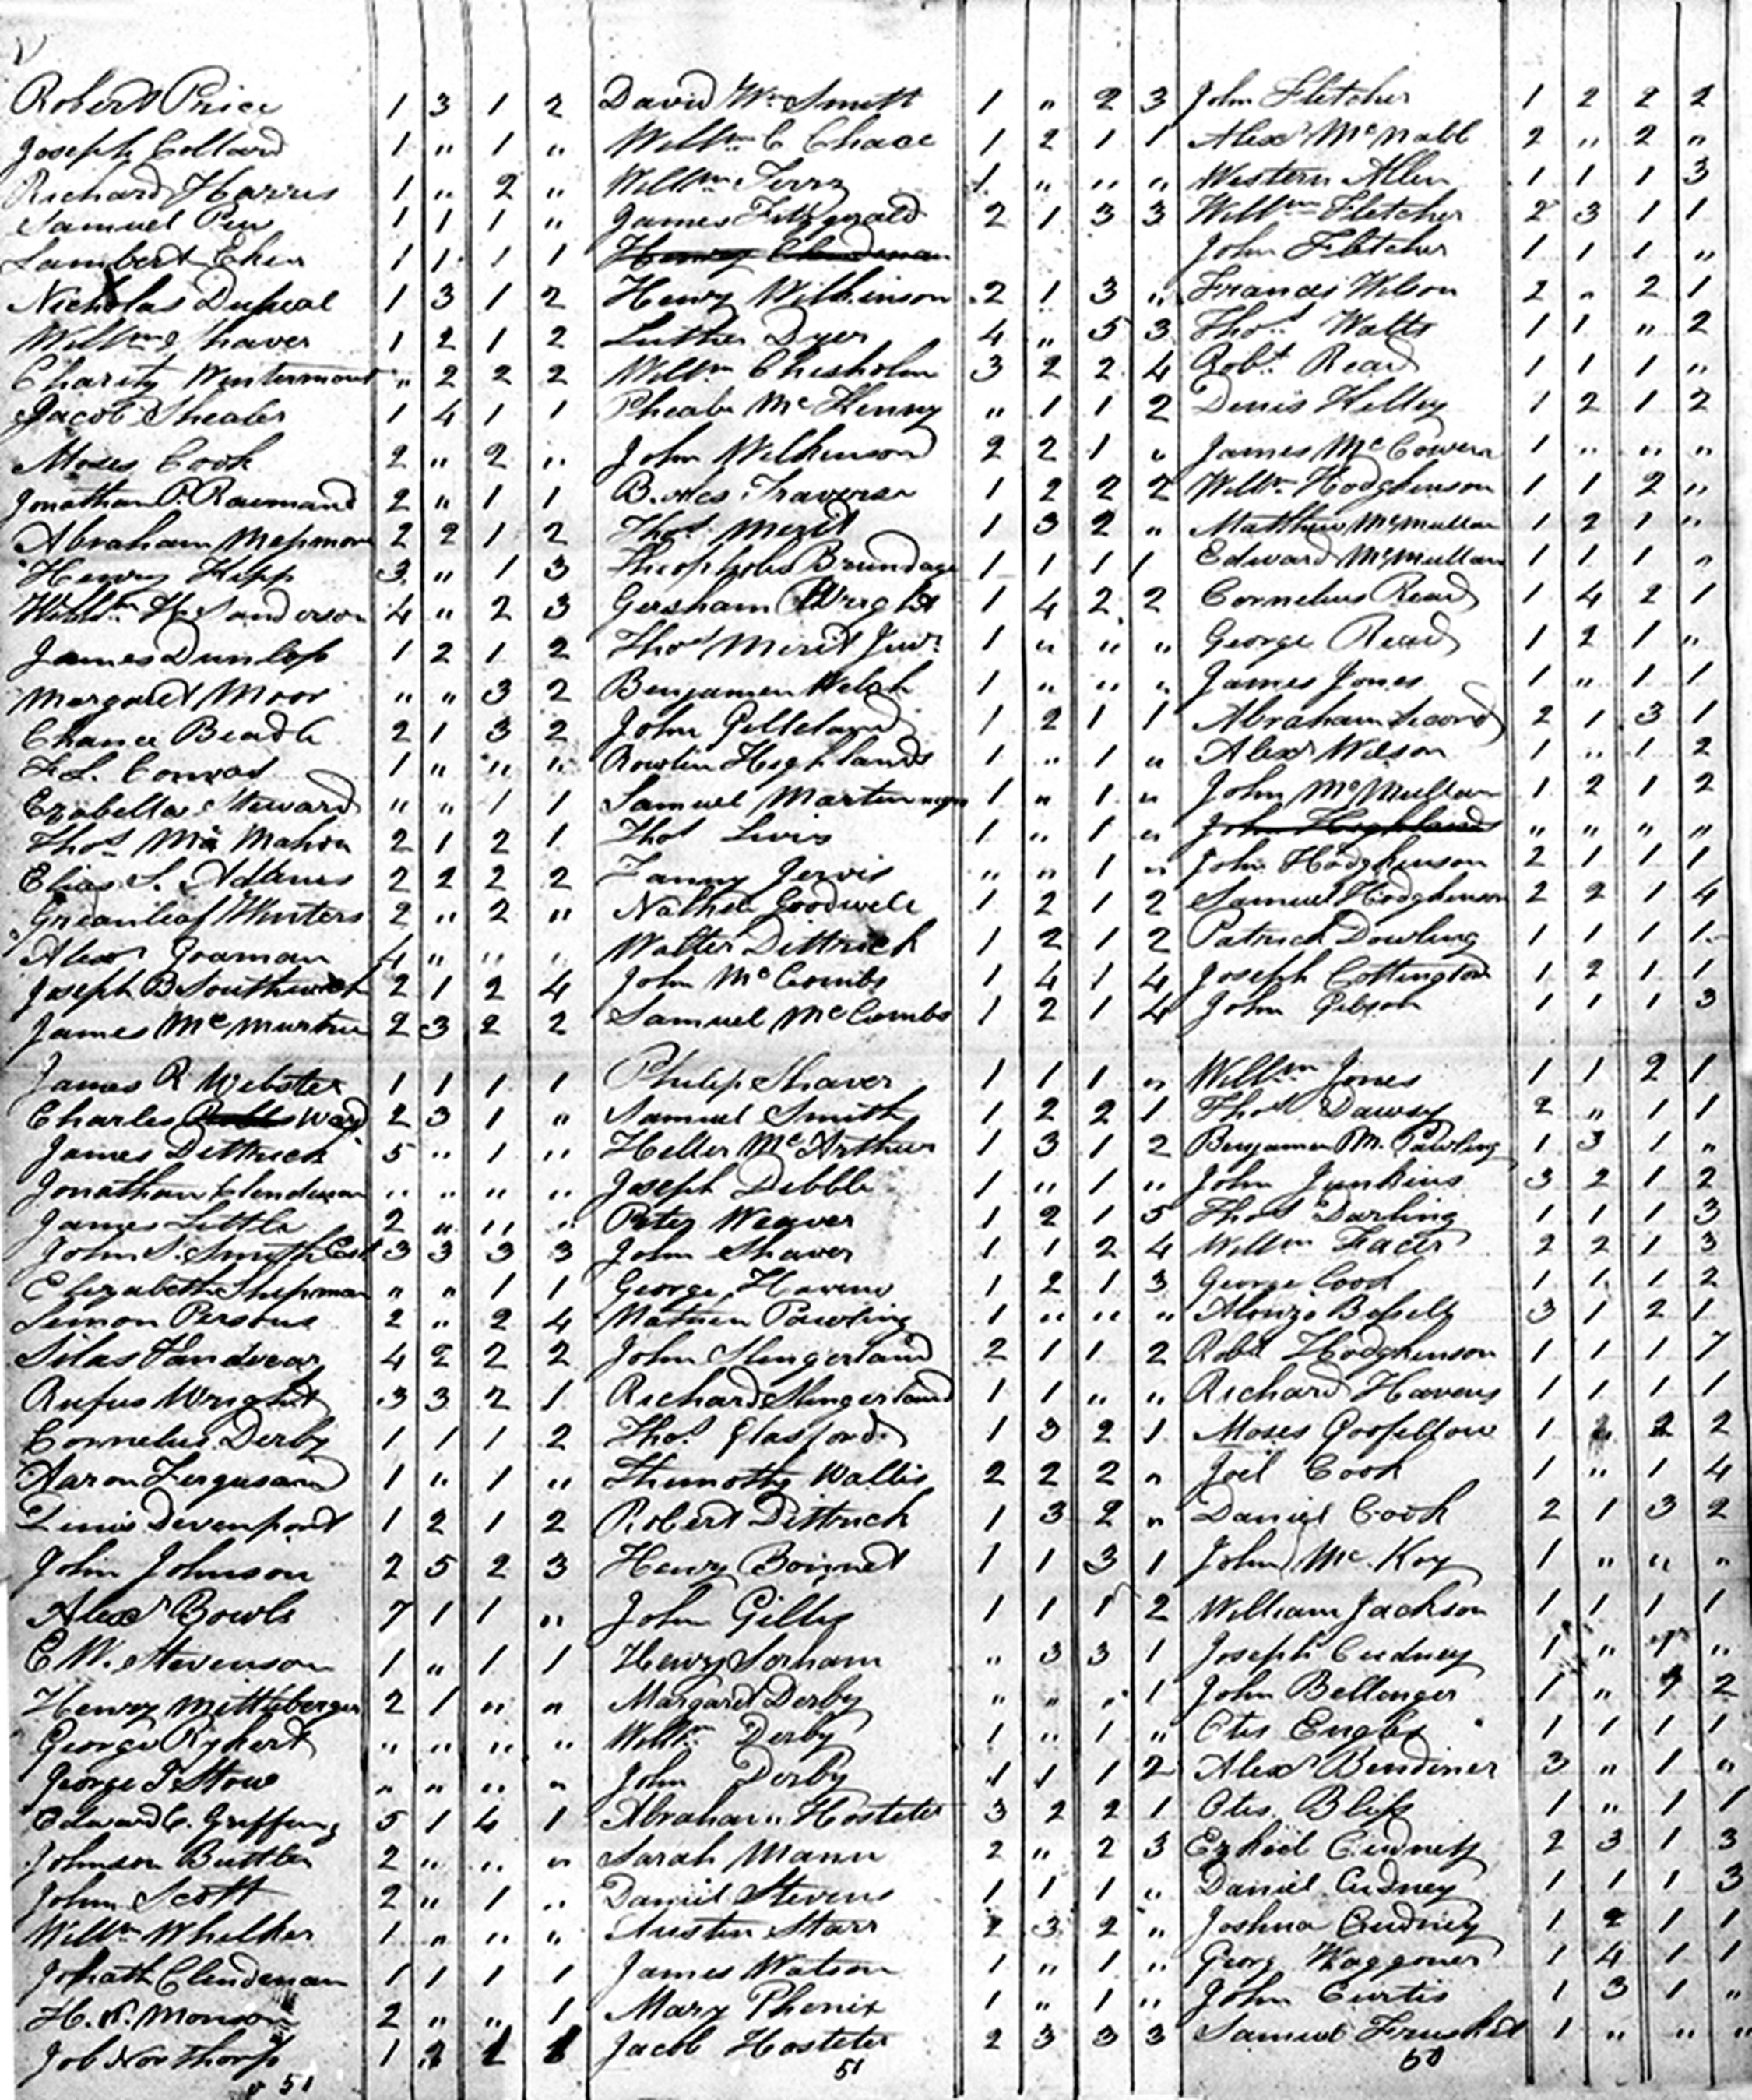 Robert Price 1 3 1 2
Joseph Collard 1 " 1 "
Richard Harris 1 " 2 "
Samuel Pew 1 1 1 "
Lambert Eken 1 1 1 1
Nicholas Dupual 1 3 1 2
Willm Shaver 1 2 1 2
Charity Wintermout " 2 2 2
Jacob Shealer 1 4 1 1
Moses Cook 2 " 2 "
Jonathan P. Raymand 2 " 1 1
Abraham 2 2 1 2
Henry Kipp 3 " 1 3
Willm H. Sanderson 4 " 2 3
James Dunlop 1 2 1 2
Margaret Moor " " 3 2
Chance Beadle 2 1 3 2
F. L. Conrad 1 " " "
Ezabella Steward " " 1 1
Thos Mc Mahon 2 1 2 1
Elias S. Adams 2 2 2 2
Greanleaf Winters 2 " 2 "
Alexr Goaman 4 " " "
Joseph B Southwick 2 1 2 4
James Mc Murtrie 2 3 2 2
James R Webster 1 1 1 1
Charles Ward 2 3 1 "
James Dettrick 5 " 1 "
Jonathan Clendenan " " " "
James Little 2 " " "
John S. Smith Est 3 3 3 3
Elizabeth Shipman " " 1 1
Simon Persons 2 " 2 4
Silas Vandvear 4 2 2 2
Rufus Wright 3 3 2 1
Cornelus Derby 1 1 1 2
Aaron Fergusam 1 " 1 "
Linis Devenport 1 2 1 2
John Johnson 2 5 2 3
Alexr Bowls 7 1 1 "
E W. Stevenson 1 " 1 1
Henry Mittleberger 2 1 " "
George Rykert " " " "
George T Stow " " " "
Edward C. Griffen 5 1 4 1
Johnson Buttler 2 " " "
John Scott 2 " 1 "
Willm Whelker 1 " " "
Johath Clendenan 1 1 1 1
H. N. Monson 2 " " 1
Job Northorp 1
51
David Wm Smith 1 " 2 3
Willm C Chace 1 2 1 1
Willm Terry 1 " " "
James Fitzgerald 2 1 3 3
Henry Clendenan
Henry Wilkinson 2 1 3 "
Luther Dyer 4 " 5 3
Willm Chisholm 3 2 2 4
Pheabe Mc Kenny " 1 1 2
John Wilkinson 2 2 1 "
Traverse 1 2 2 2
Thos Merit 1 3 2 "
Theopholes Brundage 1 1 1 1
Gersham Wright 1 4 2 2
Thos Merit Junr 1 " " "
Benjamen Welch 1 " " "
John Gilleland 1 2 1 1
Rowlin Highlands 1 " 1 "
Samuel Martin 1 " 1 "
Thos Lewis 1 " 1 "
Fanny Jervis " " 1 "
Nathen Goodwill 1 2 1 2
Walter Dittrick 1 2 1 2
John Mc Combs 1 4 1 4
Samuel Mc Combs 1 2 1 4
Philip Shaver 1 1 1 "
Samuel Smith 1 2 2 1
Heller Mc Arthur 1 3 1 2
Joseph Debble 1 " 1 "
Peter Weaver 1 2 1 5
John Shaver 1 1 2 4
George Havens 1 2 1 3
Mathew Pawling 1 " " "
John Slingerland 2 1 1 2
Richard Slingerland 1 1 " "
Thos Glasford 1 3 2 1
Thimothy Wallis 2 2 2 "
Robert Dittrick 1 3 2 "
Henry Boinnet 1 1 3 1
John Gilly 1 1 1 2
Henry Sorham " 3 3 1
Margaret Derby " " " 1
Willm Derby 1 " 1 "
John Derby 1 1 1 2
Abraham Hosteter 3 2 2 1
Sarah Mann 2 " 2 3
Daniel Stevens 1 1 1 "
Austin Starr 2 3 2 "
James Watson 1 " 1 "
Mary Phenix 1 " 1 "
Jacob Hosteter 2 3 3 3
51
John Fletcher 1 2 2 2
Alexr Mc Nabb 2 " 2 "
Western Allen 1 1 1 3
Willm Fletcher 2 3 1 1
John Fletcher 1 1 1 "
Francis Wilson 2 " 2 1
Thos Watts 1 1 " 2
Robt Read 1 1 1 "
Denis Kelley 1 2 1 2
James Mc Cowern 1 " " "
Willm Hodgkinson 1 1 2 "
Matthew McMullan 1 2 1 "
Edward McMullan 1 1 1 "
Cornelius Read 1 4 2 1
George Read 1 2 1 "
James Jones 1 " 1 1
Abraham Secord 2 1 3 1
Alexr Wilson 1 " 1 2
John McMullan 1 2 1 2
John Highlands " " " "
John Hodghinson 2 1 1 1
Samuel Hodghinson 2 2 1 4
Patrick Dowling 1 1 1 1
Joseph Cottington 1 2 1 1
John Gibson 1 1 1 3
Willm Jones 1 1 2 1
Thos Dawsey 2 " 1 1
Benjamen M. Pawling 1 3 1 "
John Junkins 3 2 1 2
Thos Darling 1 1 1 3
Willm Facer 2 2 1 3
George Cook 1 1 1 2
Alonzo Bassell 3 1 2 1
Robt Hodghinson 1 1 1 7
Richard Havens 1 1 1 1
Moses Goosfellow 1 2 2 2
Joel Cook 1 " 1 4
Daniel Cook 2 1 3 2
John Mc. Koy 1 " " "
William Jackson 1 1 1 1
Joseph Cudney 1 " 1 "
John Bellenger 1 " 1 2
Otis Engles 1 1 1 1
Alexr Bendiner 3 " 1 "
Otis Bliss 1 " 1 1
Ezkiel Cudney 2 3 1 3
Daniel Cudney 1 1 1 3
Joshua Cudney 1 2 1 1
Georg Waggoner 1 4 1 1
John Curtis 1 3 1 "
Samuel 1 " " "
50